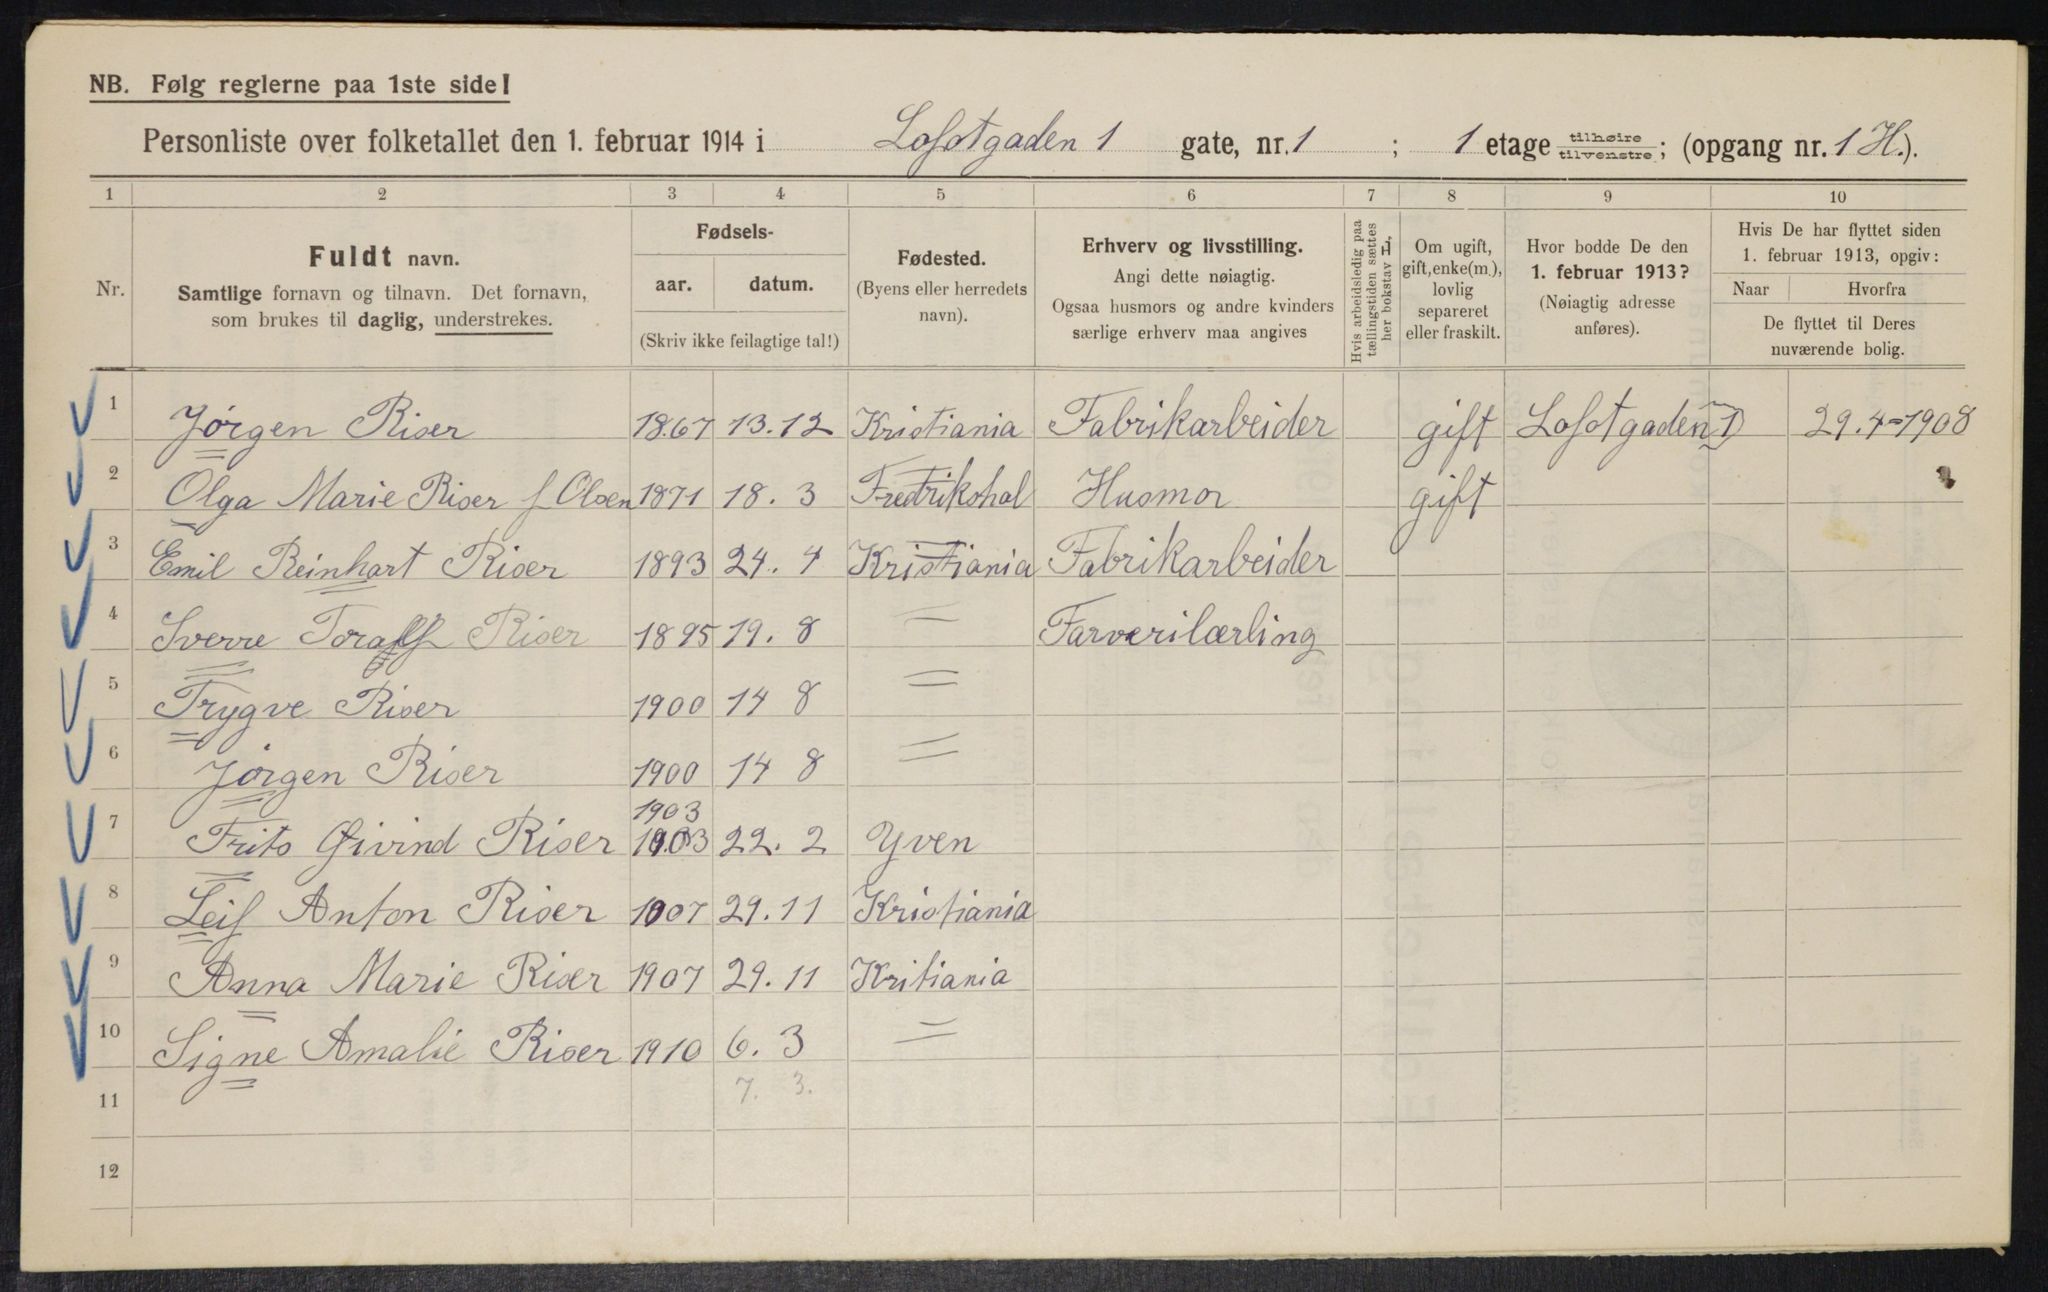 NB. Følg reglerne paa 1ste side!
Personliste over folketallet den 1. februar 1914 i Lofotgaden 1 gate, nr. 1 ; 1 etage tilhøire tilvenstre; (opgang nr. 1 H.).
1 2 3 4 5 6 7 8 9 10
Nr.
Fuldt navn.
Samtlige fornavn og tilnavn. Det fornavn,
som brukes til daglig, understrekes.
Fødsels-
aar. datum.
(Skriv ikke feilagtige tal!)
Fødested.
(Byens eller herredets
navn).
Erhverv og livsstilling.
Angi dette nøiagtig.
Ogsaa husmors og andre kvinders
særlige erhverv maa angives
Hvis arbeidsledig paa
tællingstiden sættes
her bokstav L,
Om ugift,
gift, enke(m.),
lovlig
separeret
eller fraskilt.
Hvor bodde De den
1. februar 1913?
(Nøiagtig adresse
anføres).
Hvis De har flyttet siden
1. februar 1913, opgiv:
Naar Hvorfra
De flyttet til Deres
nuværende bolig.
1 Jørgen Riser 1867 13.12 Kristiania Fabrikarbeider gift Lofotgaden 1 29.4=1908
2 Olga Marie Riser f Olsen 1871 18. 3 Fredrikshal Husmor gift
3 Emil Reinhart Riser 1893 24. 4 Kristiania Fabrikarbeider
4 Sverre Toralf Riser 1895 19. 8 = Farverilærling
5 Trygve Riser 1900 14 8 =
6 Jørgen Riser 1900 14 8 =
1903
7 Frits Øivind Riser 1903 22. 2 Yven
8 Leif Anton Riser 1907 29.11 Kristiania
9 Anna Marie Riser 1907 29.11 Kritiania
10 Signe Amalie Riser 1910 6. 3 =
11 7. 3.
12